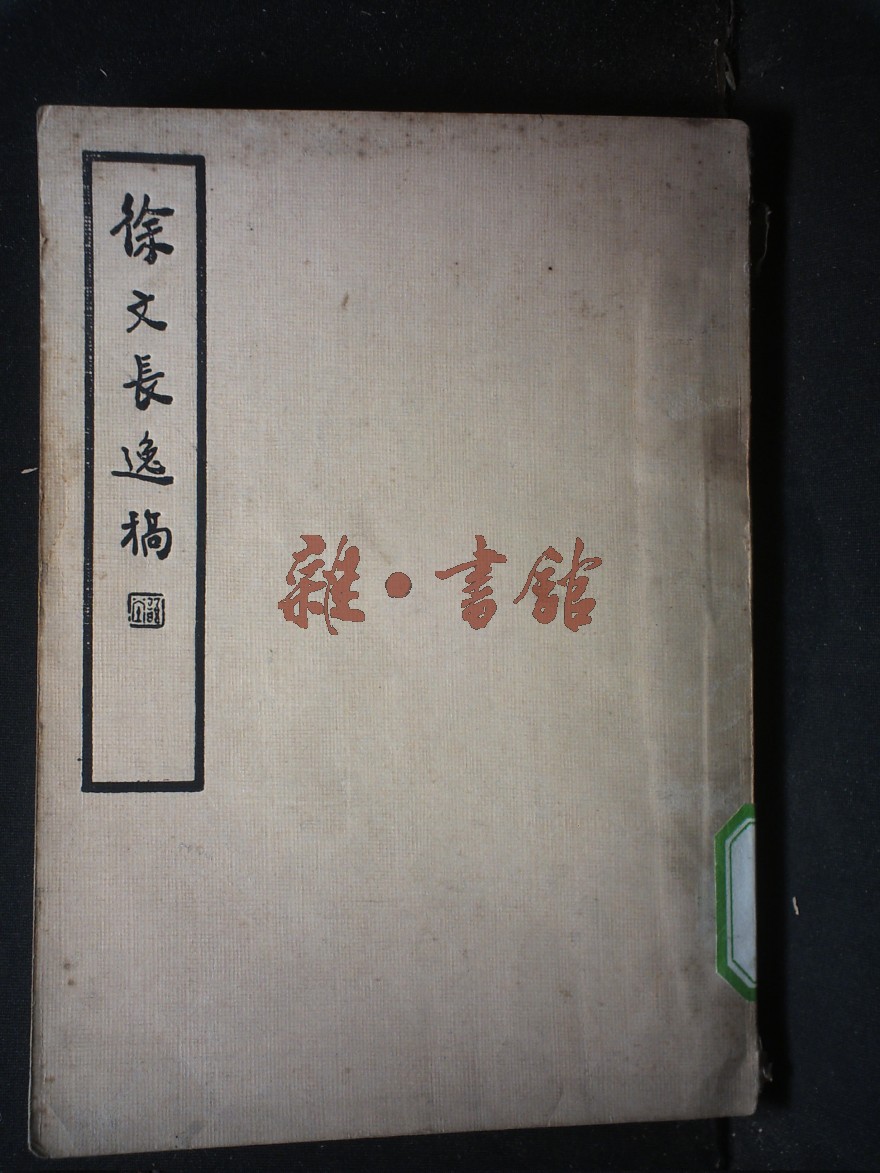 徐文長逸稿
雜·書館